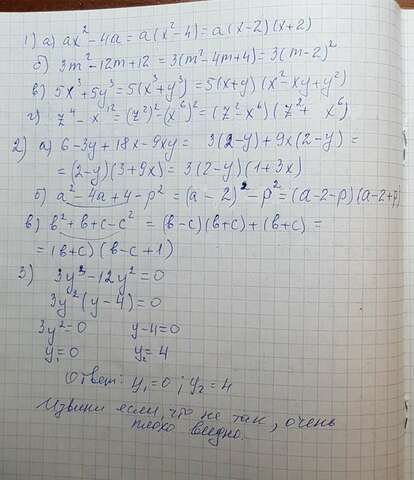 1) а) ax² - 4a = a(x² - 4) = a(x-2)(x+2)
б) 3m² - 12m + 12 = 3(m² - 4m + 4) = 3(m-2)²
в) 5x³ + 5y³ = 5(x³ + y³) = 5(x+y)(x² - xy + y²)
г) z⁴ - x¹² = (z²)² - (x⁶)² = (z² - x⁶)(z² + x⁶)
2) а) 6 - 3y + 18x - 9xy = 3(2-y) + 9x(2-y) =
= (2-y)(3+9x) = 3(2-y)(1+3x)
б) a² - 4a + 4 - p² = (a-2)² - p² = (a-2-p)(a-2+p)
в) b² + b + c - c² = (b-c)(b+c) + (b+c) =
= (b+c)(b-c+1)
3) 3y³ - 12y² = 0
3y²(y-4) = 0
3y² = 0 y-4=0
y₁ = 0 y₂ = 4
Ответ: y₁ = 0; y₂ = 4
Извини если, что не так, очень
плохо видно.